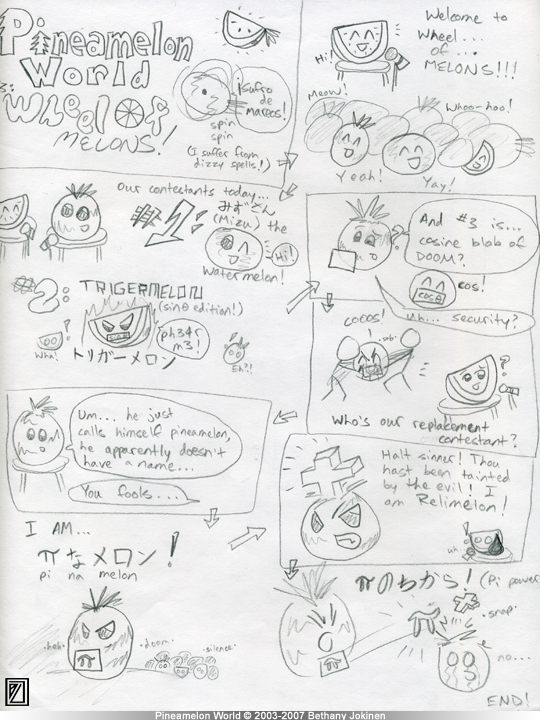 Pineamelon
World
3:
Wheel Of
MELONS!
¡sufro
de
mareos!
spin
spin
(I suffer from
dizzy spells!)
Hi!
Welcome to
Wheel...
of...
MELONS!!!
Meow!
Whoo-hoo!
Yeah!
Yay!
Our contestants today...
#1:
みずどん
(Mizu) the
Hi!
Watermelon!
#2:
TRIGERMELON
(sinθ edition!)
ph34r
m3!
Wha!
トリガーメロン
Eh?!
And #3 is...
cosine blob of
DOOM?
cosθ
cos!
uh... security?
cocos!
-sob-
?
Who's our replacement
contestant?
Um... he just
calls himself pineamelon,
he apparently doesn't
have a name...
You fools...
Halt sinner! Thou
hast been tainted
by the evil! I
am Relimelon!
uh
I AM...
πなメロン!
pi na melon
-heh-
π
-doom-
-silence-
πのちから! (Pi power
π
π
-snap-
no...
END!
Pineamelon World © 2003-2007 Bethany Jokinen